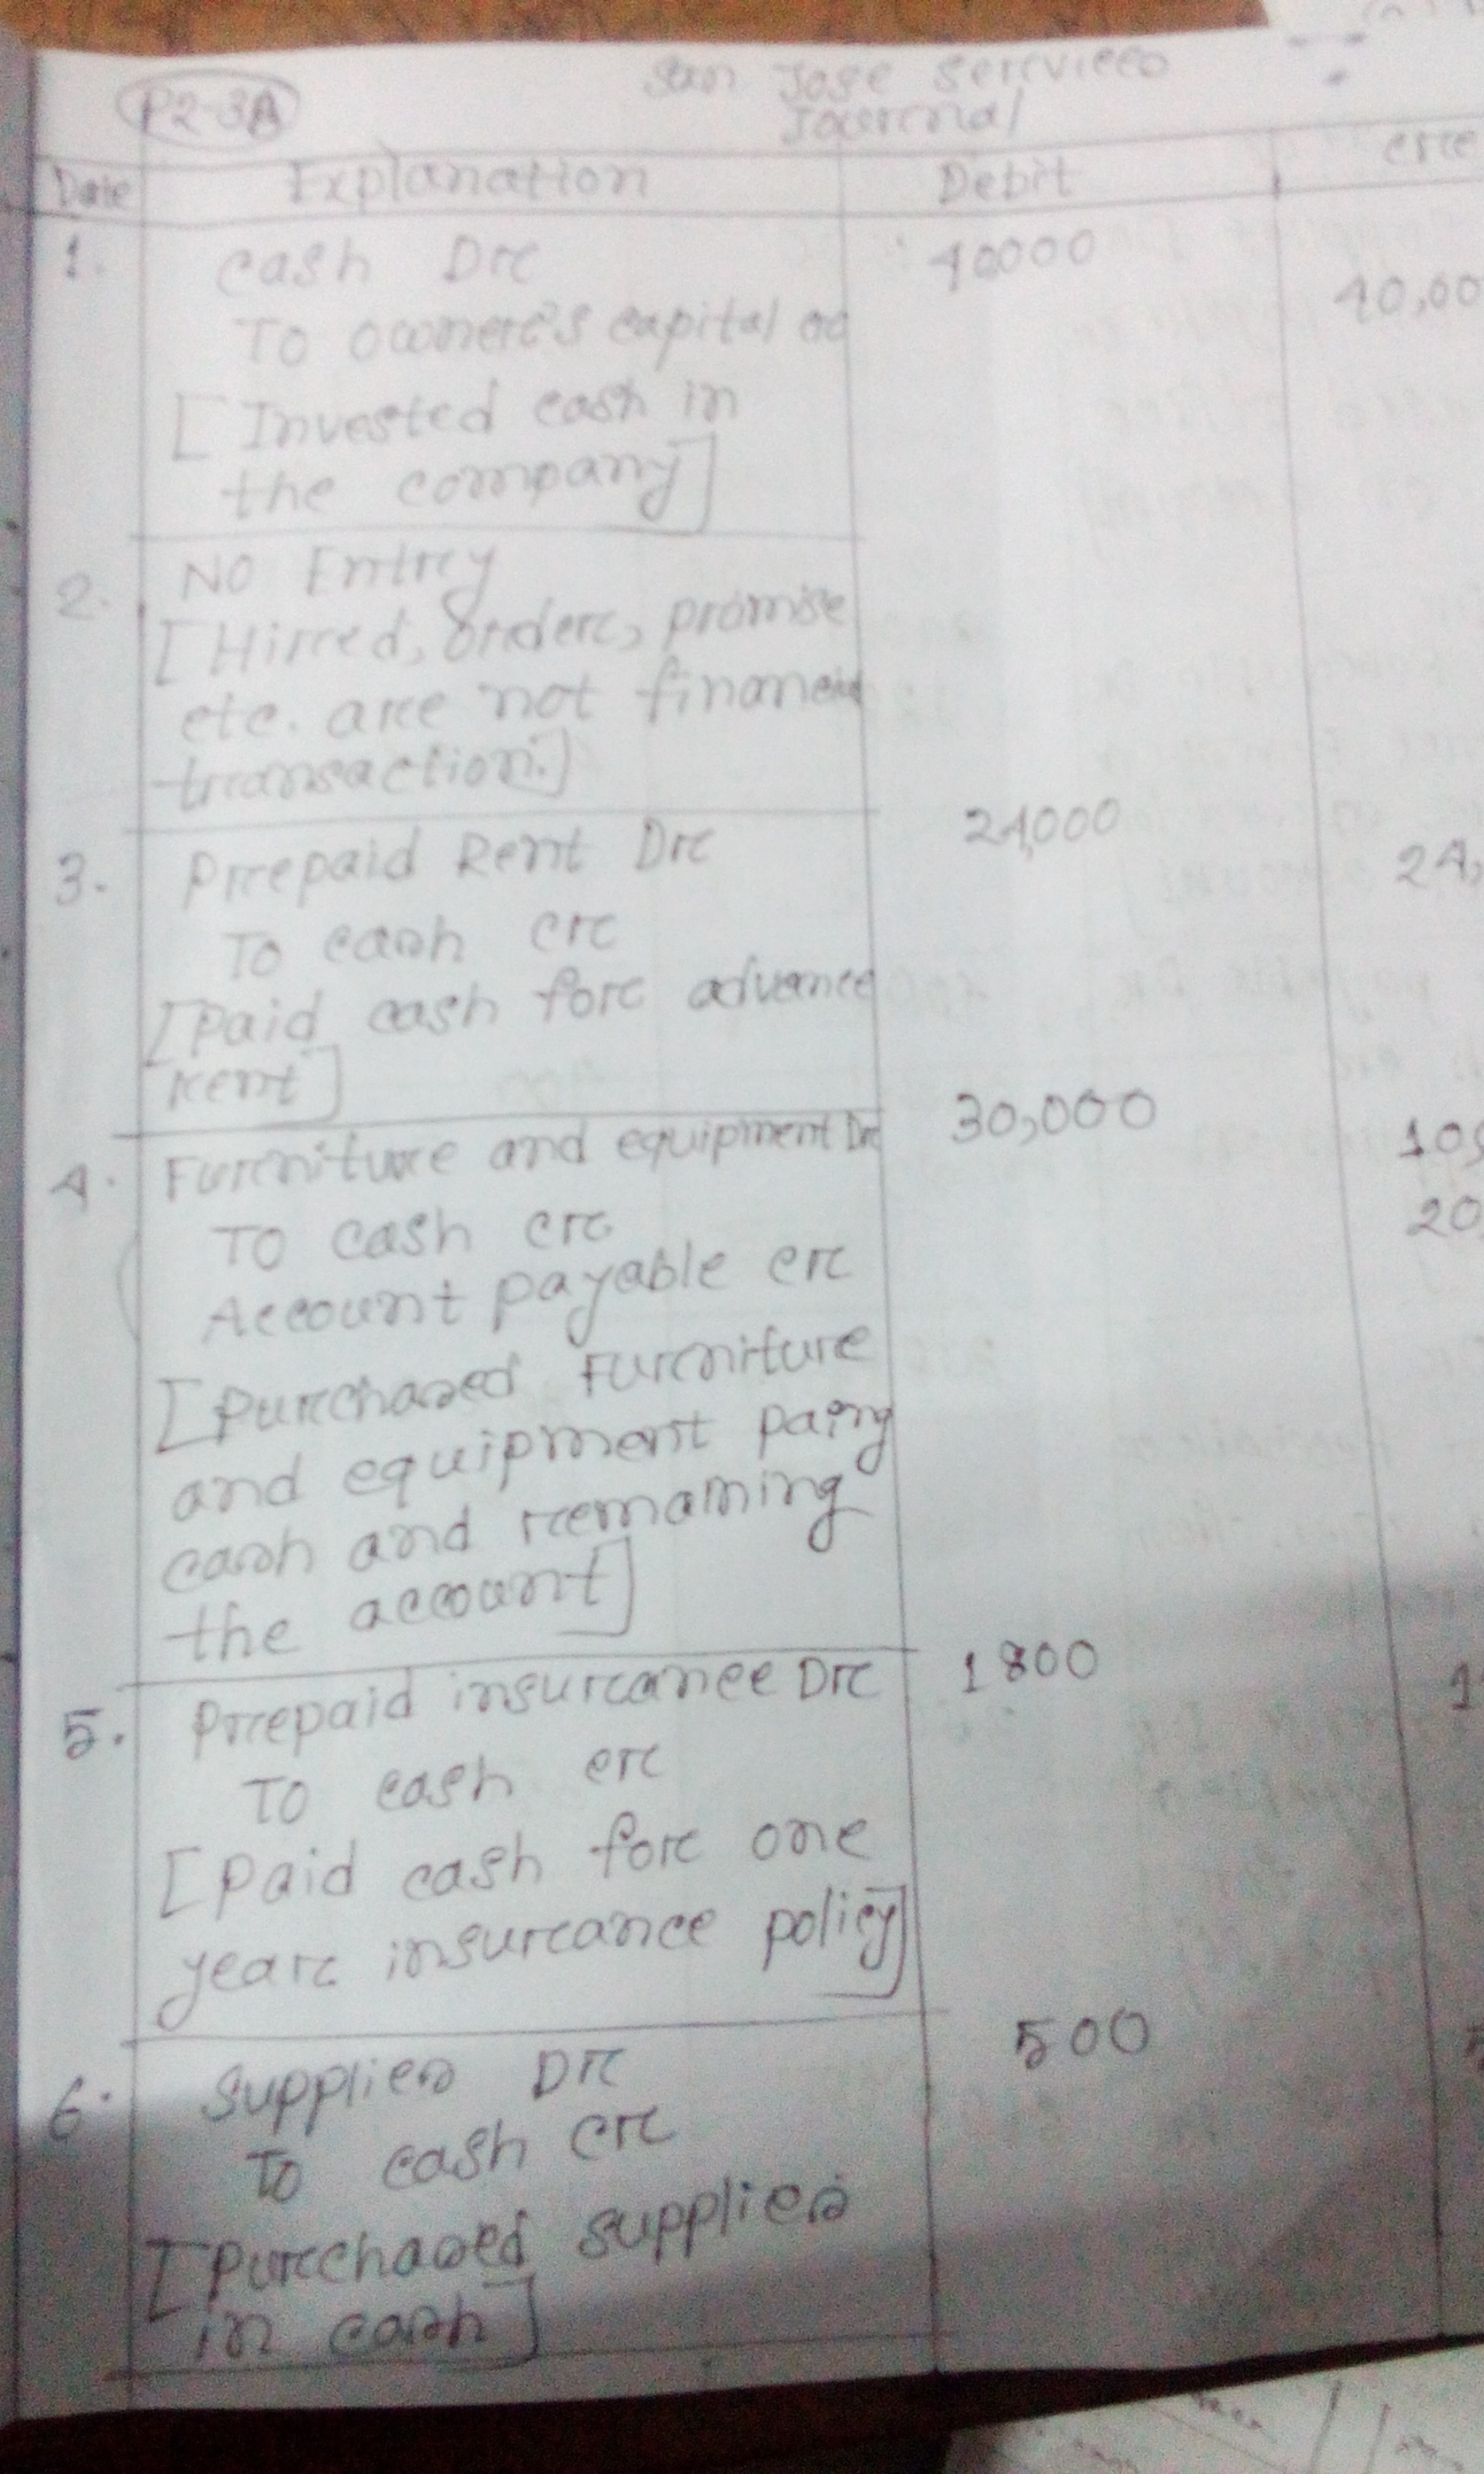 P2-3A
San Jose Services
Journal
Date Explanation Debit cre
1. cash Dr 40000
To owner's capital ac 40,00
[Invested cash in
the company]
2. NO Entry
[Hired, order, promise
etc. are not financial
transaction.]
3. Prepaid Rent Dr 24,000
To cash cr 24,
[Paid cash for advance
Rent]
4. Furniture and equipment Dr 30,000
To cash cr 10,
Account payable cr 20,
[Purchased Furniture
and equipment paing
cash and remaining
the account]
5. Prepaid insurance Dr 1800
To cash cr 1
[Paid cash for one
year insurance policy]
6. Supplies Dr 500
To cash cr 5
[Purchased supplies
in cash]